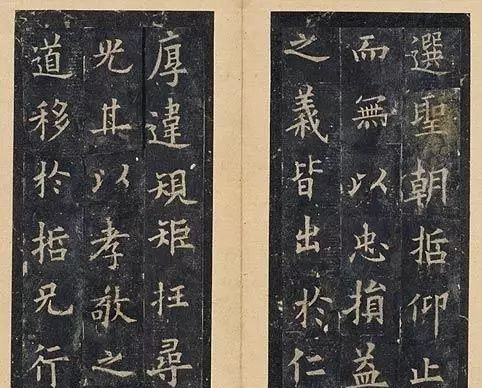 選聖朝哲仰止
而無以忠損益
之義皆出於仁
厚違䂓矩抂尋
光其以孝敬之
道移於哲兄行